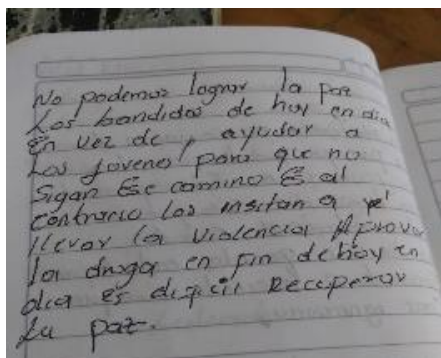 No podemos lograr la paz
Los bandidos de hoy en dia
En vez de, ayudar a
Los jovenes para que no
Sigan Ese camino Es al
contrario los insitan a
llevar la violencia Aprovar
la droga en fin de hoy en
dia es dificil Recuperar
La paz.